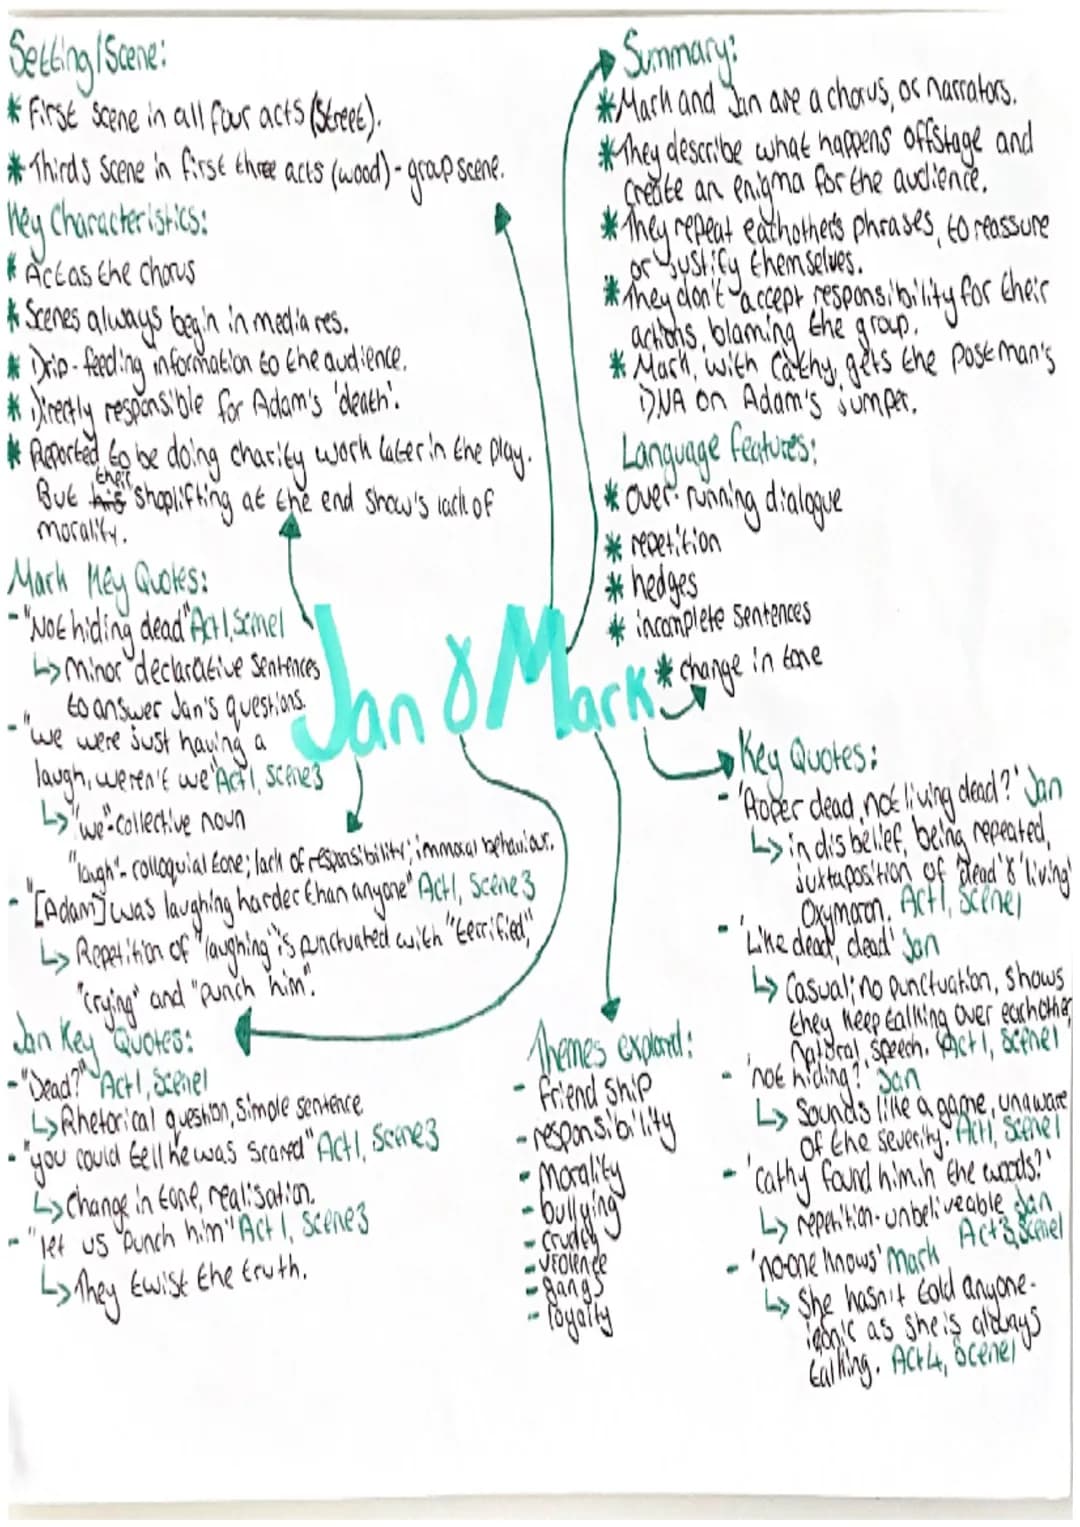 Setting/Scene:
* First scene in all four acts (Street).
* Thirds scene in first three acts (wood) - group scene.
Key Characteristics:
* Act as the chorus
* Scenes always begin in media res.
* Drip-feeding information to the audience.
* Directly responsible for Adam's 'death'.
* Reported to be doing charity work later in the play.
But his their shoplifting at the end show's lack of
morality.
Mark Key Quotes:
- "Not hiding dead" Act 1, Scene 1
↳ Minor declarative sentences
to answer Jan's questions.
- "we were just having a
laugh, weren't we" Act 1, Scene 3
↳ "we"-collective noun
"laugh"- colloquial tone; lack of responsibility; immoral behaviour.
- "[Adam] was laughing harder than anyone" Act 1, Scene 3
↳ Repetition of "laughing" is punctuated with "terrified",
"crying" and "punch him".
Jan Key Quotes:
- "Dead?" Act 1, Scene 1
↳ Rhetorical question, simple sentence
- "you could tell he was scared" Act 1, Scene 3
↳ Change in tone, realisation.
- "let us punch him" Act 1, Scene 3
↳ They twist the truth.
Jan & Mark
Summary:
* Mark and Jan are a chorus, or narrators.
* They describe what happens offstage and
create an enigma for the audience.
* They repeat eachother's phrases, to reassure
or justify themselves.
* They don't accept responsibility for their
actions, blaming the group.
* Mark, with Cathy, gets the Postman's
DNA on Adam's jumper.
Language features:
* over-running dialogue
* repetition
* hedges
* incomplete sentences
* change in tone
Key Quotes:
- 'Proper dead, not living dead?' Jan
↳ in disbelief, being repeated,
juxtaposition of 'dead' & 'living'
Oxymoron. Act 1, Scene 1
- 'Like dead, dead' Jan
↳ Casual; no punctuation, shows
they keep talking over eachother,
natural speech. Act 1, Scene 1
- 'not hiding?' Jan
↳ Sounds like a game, unaware
of the severity. Act 1, Scene 1
- 'Cathy found him in the woods?'
↳ repetition-unbeliveable Jan
Act 3, Scene 1
- 'no-one knows' Mark
↳ She hasn't told anyone-
ironic as she is always
talking. Act 4, Scene 1
Themes explored:
- Friendship
- responsibility
- Morality
- bullying
- cruelty
- violence
- gangs
- loyalty